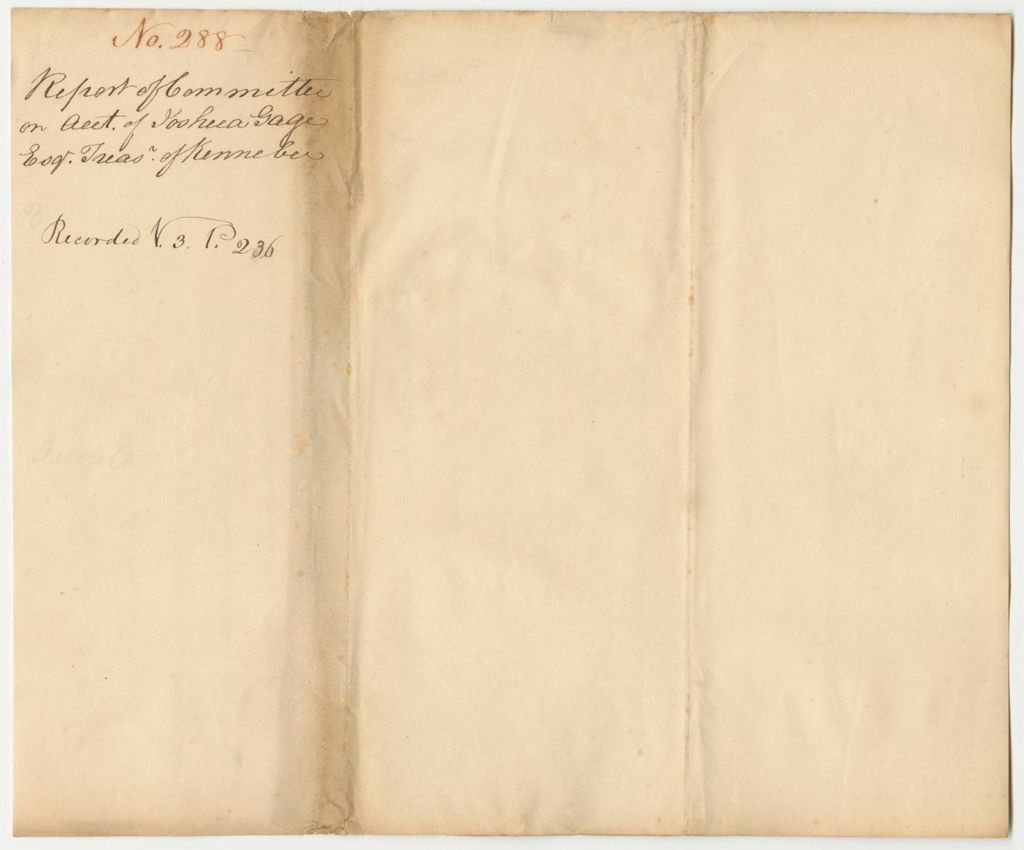 No. 288
Report of Committee
on Acct. of Joshua Gage
Esqr. Treasr. of Kennebec
Recorded V. 3. P. 236